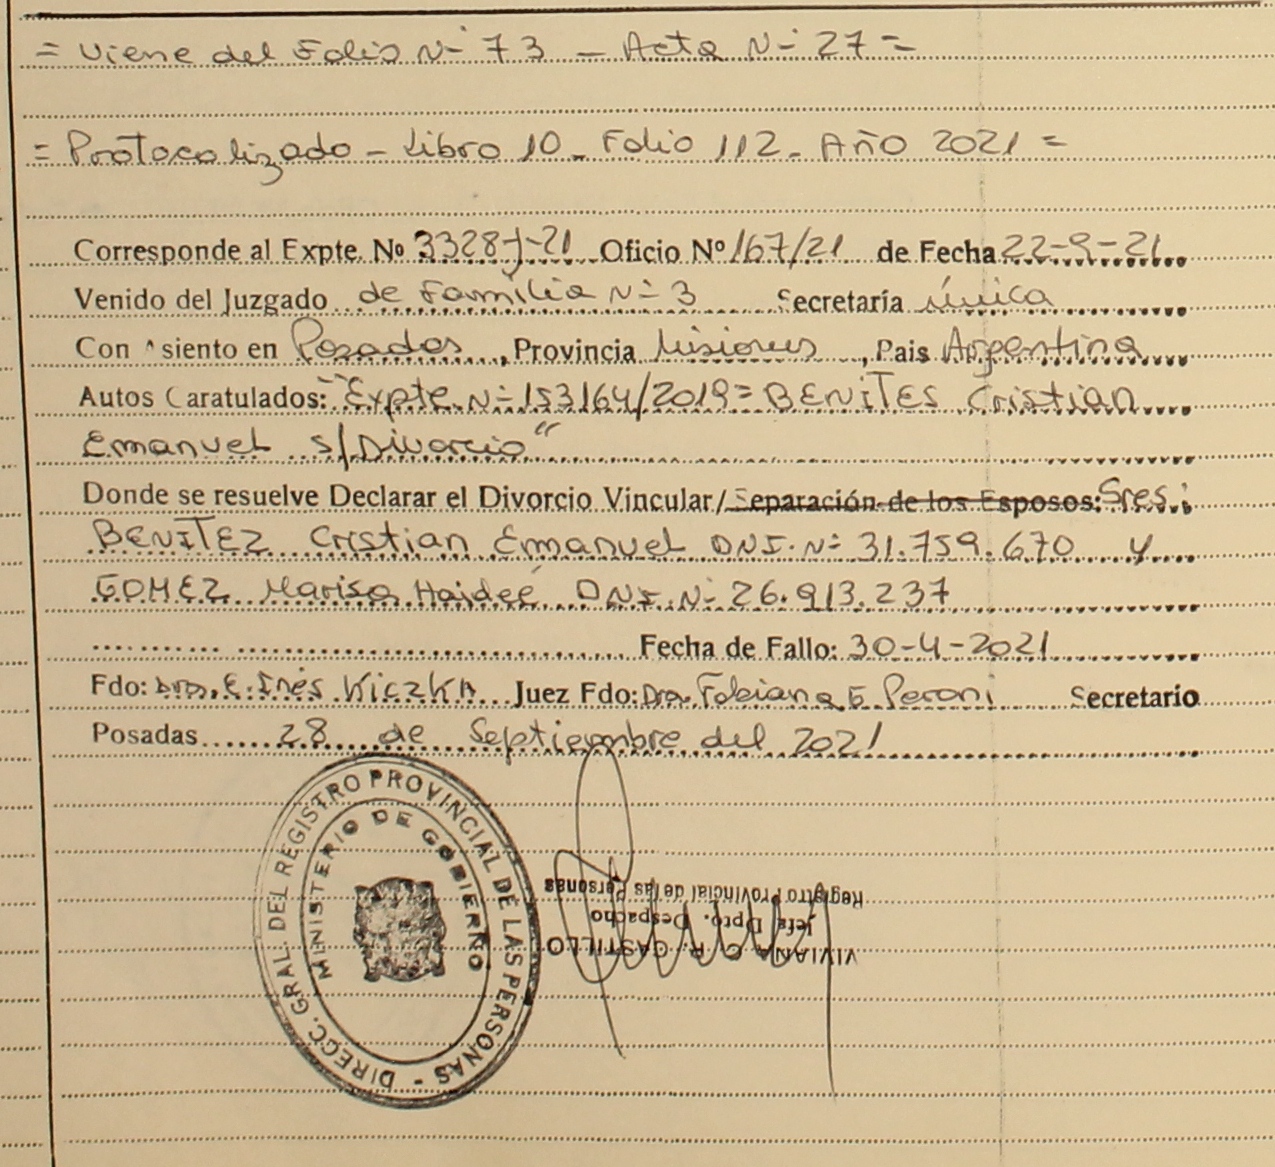 = Viene del Folio N- 73 - Acta N- 27 =
= Protocolizado - Libro 10 - Folio 112 - Año 2021 =
Corresponde al Expte. No 3328-J-21 Oficio Nº 167/21 de Fecha 22-9-21
Venido del Juzgado de Familia N- 3 Secretaría única
Con Asiento en Posadas, Provincia Misiones, Pais Argentina
Autos Caratulados: "Expte. N- 153164/2019= BENITES Cristian
Emanuel s/Divorcio"
Donde se resuelve Declarar el Divorcio Vincular/Separación de los Esposos: Sres:
BENITEZ Cristian Emanuel DNI. N- 31.759.670 y
GOMEZ Marisa Haideé DNI. N- 26.913.237
Fecha de Fallo: 30-4-2021
Fdo: Dra. E. Inés Kiczka Juez Fdo: Dra. Fabiana E. Peroni Secretario
Posadas 28 de Septiembre del 2021
DIRECC. GRAL. DEL REGISTRO PROVINCIAL DE LAS PERSONAS -
MINISTERIO DE GOBIERNO
VIVIANA C. R. CASTILLO
Jefa Dpto. Despacho
Registro Provincial de las Personas